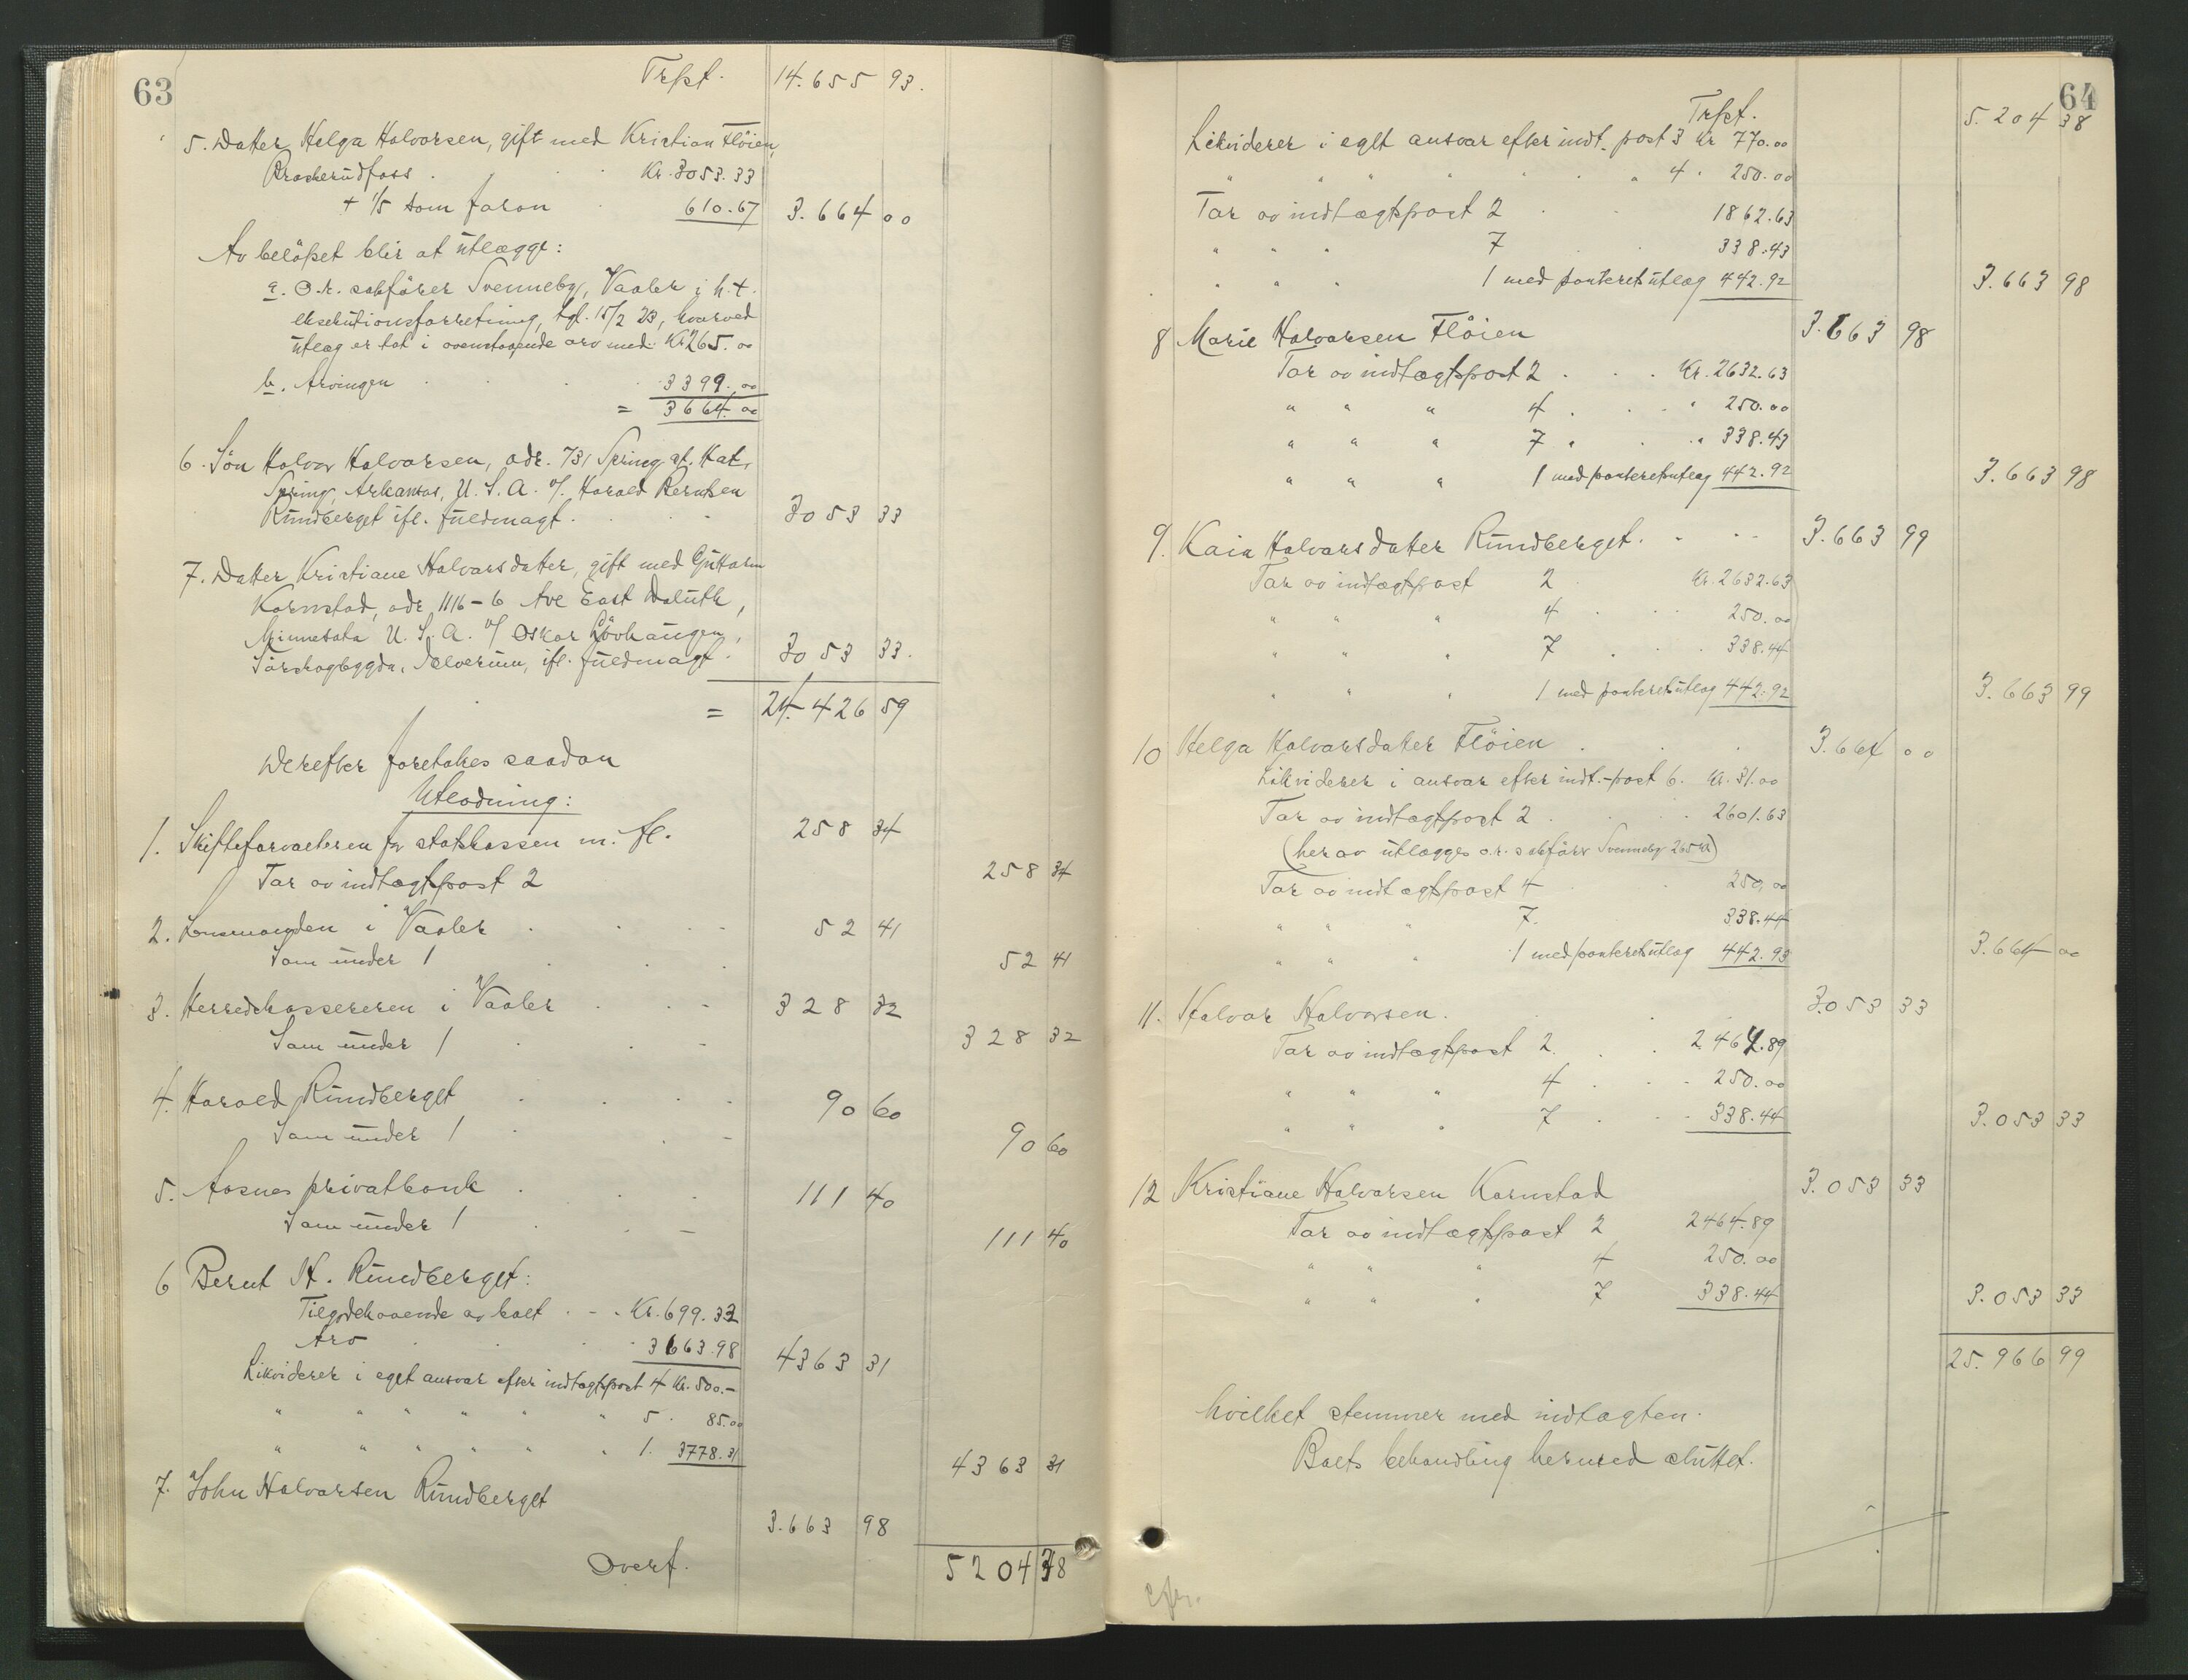 63
Trpt. 14.655 93.
5. Datter Helga Halvorsen, gift med Kristian Flöien,
Braskerudfoss . . . Kr. 3053.33
+ 1/5 som foran . 610.67 3.664 00
Av belöpet blir at utlægge:
a. O.r. sakförer Svenneby, Vaaler i h.t.
eksekutionsforretning, tgl. 15/2 23, hvorved
utlæg er tat i ovenstaaende arv med: Kr 265.00
b. Arvingen . . . 3399.00
= 3664.00
6. Sön Halvor Halvorsen, adr. 731 Spring st. Hat.
Spring, Arkansas, U.S.A. v/ Harald Berntsen
Rundberget ifl. fuldmagt . . . 3053 33
7. Datter Kristiane Halvorsdatter, gift med Guttorm
Kornstad, adr 1116-6 Ave East Duluth,
Minnesota U.S.A. v/ Oskar Lövhaugen,
Sörskogbygda, Elverum, ifl. fuldmagt . 3053 33.
= 24.426 59
Derefter foretokes saadan
Utlodning:
1. Skifteforvalteren for statskassen m. fl. 258 34
Tar av indtægtspost 2 258 34
2. Lensmanden i Vaaler . . . . 52 41
Som under 1 . . . 52 41
3. Herredskassereren i Vaaler . . - 328 32
Som under 1 . . - 328 32
4. Harald Rundberget . . . . 90 60
Som under 1 . . - 90 60
5. Aasnes privatbank . . . 111 40
Som under 1 . . - 111 40
6 Bernt H. Rundberget:
Tilgodehavende av boet . - . Kr. 699.33
Arv . . . 3663.98 4363 31
Likviderer i eget ansvar efter indtægtspost 4 Kr. 500.-
" " " " " " 5 . 85.00
" " " " " " 1. 3778.31 4363 31
7. John Halvorsen Rundberget
3.663 98
Overf. 5204 38
64
Trpt. 5.204 38
Likviderer i eget ansvar efter indt. post 3 Kr 770.00
" " " " " " " 4 . 250.00
Tar av indtægtspost 2 . . 1862.63
" " " 7 . . 338.43
" " " 1 med panteret utlæg 442.92 3.663 98
8 Marie Halvorsen Flöien 3.663 98
Tar av indtægtspost 2 . . . Kr. 2632.63
" " " 4 . . . " 250.00
" " " 7 . . . " 338.43
" " " 1 med panteret utlæg 442.92 3.663 98
9. Kaia Halvorsdatter Rundberget. - - - 3.663 99
Tar av indtægtspost 2 . Kr. 2632.63
" " " 4 . . . 250.00
" " " 7 . . 338.44
" " " 1 med panteret utlæg 442.92 3.663 99
10 Helga Halvorsdatter Flöien . . . 3.664 00
Likviderer i ansvar efter indt.-post 6. Kr. 31.00
Tar av indtægtspost 2 . . . 2601.63
(herav utlægges o.r. sakförer Svenneby 265 kr)
Tar av indtægtspost 4 . 250.00
" " " 7. 338.44
" " " 1 med panteret utlæg 442.93 3.664 00
11. Halvor Halvorsen . . . 3.053 33
Tar av indtægtspost 2. . . 2.464.89
" " " 4 . . - 250.00
" " " 7 . . - 338.44 3.053 33
12 Kristiane Halvorsen Kornstad 3.053 33
Tar av indtægtspost 2 2464.89
" " " 4 250.00
" " " 7 338.44 3.053 33
25.966 99
hvilket stemmer med indtægten.
Boets behandling hermed sluttet.